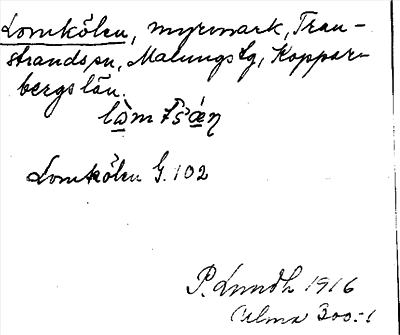 Lomkölen, myrmark, Tran-
strands sn, Malungs tg, Koppar-
bergs län.
Lomkölen G. 102
P. Lundh 1916
Alma 300:-1